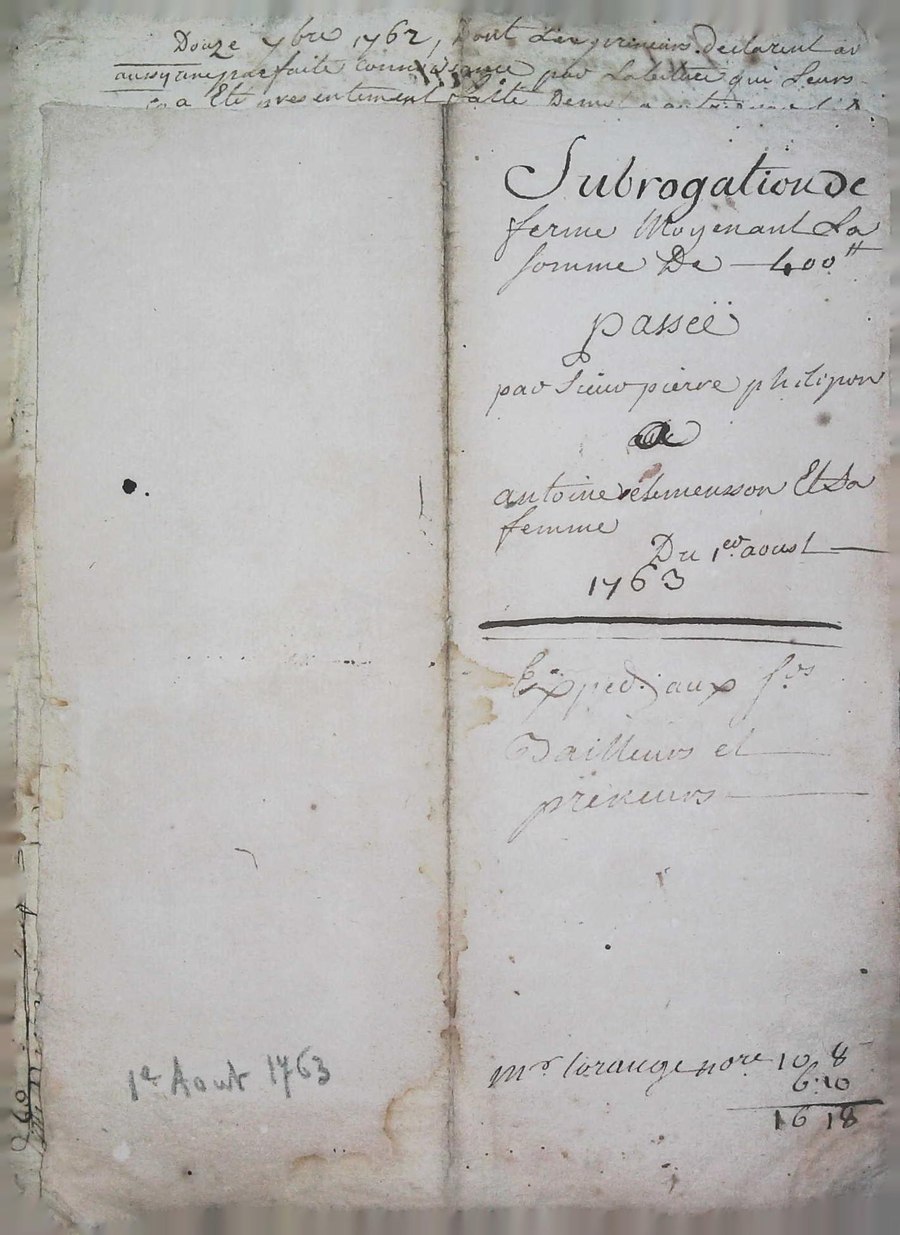 Douze 7bre 1762, Dont Les preneurs declarent av
aussy une parfaite connoissance par La lecture qui Leurs
a Eté presentement faitte
Subrogation De
ferme Moyenant La
somme De 400tt
passeë
par Sieur pierre philipon
a
antoine Et Sa
femme
Du 1er. aoust
1763
Exped. aux srs
Bailleurs et
preneurs
1er Aout 1763
mr. lorange nore 10 8
6 10
16 18